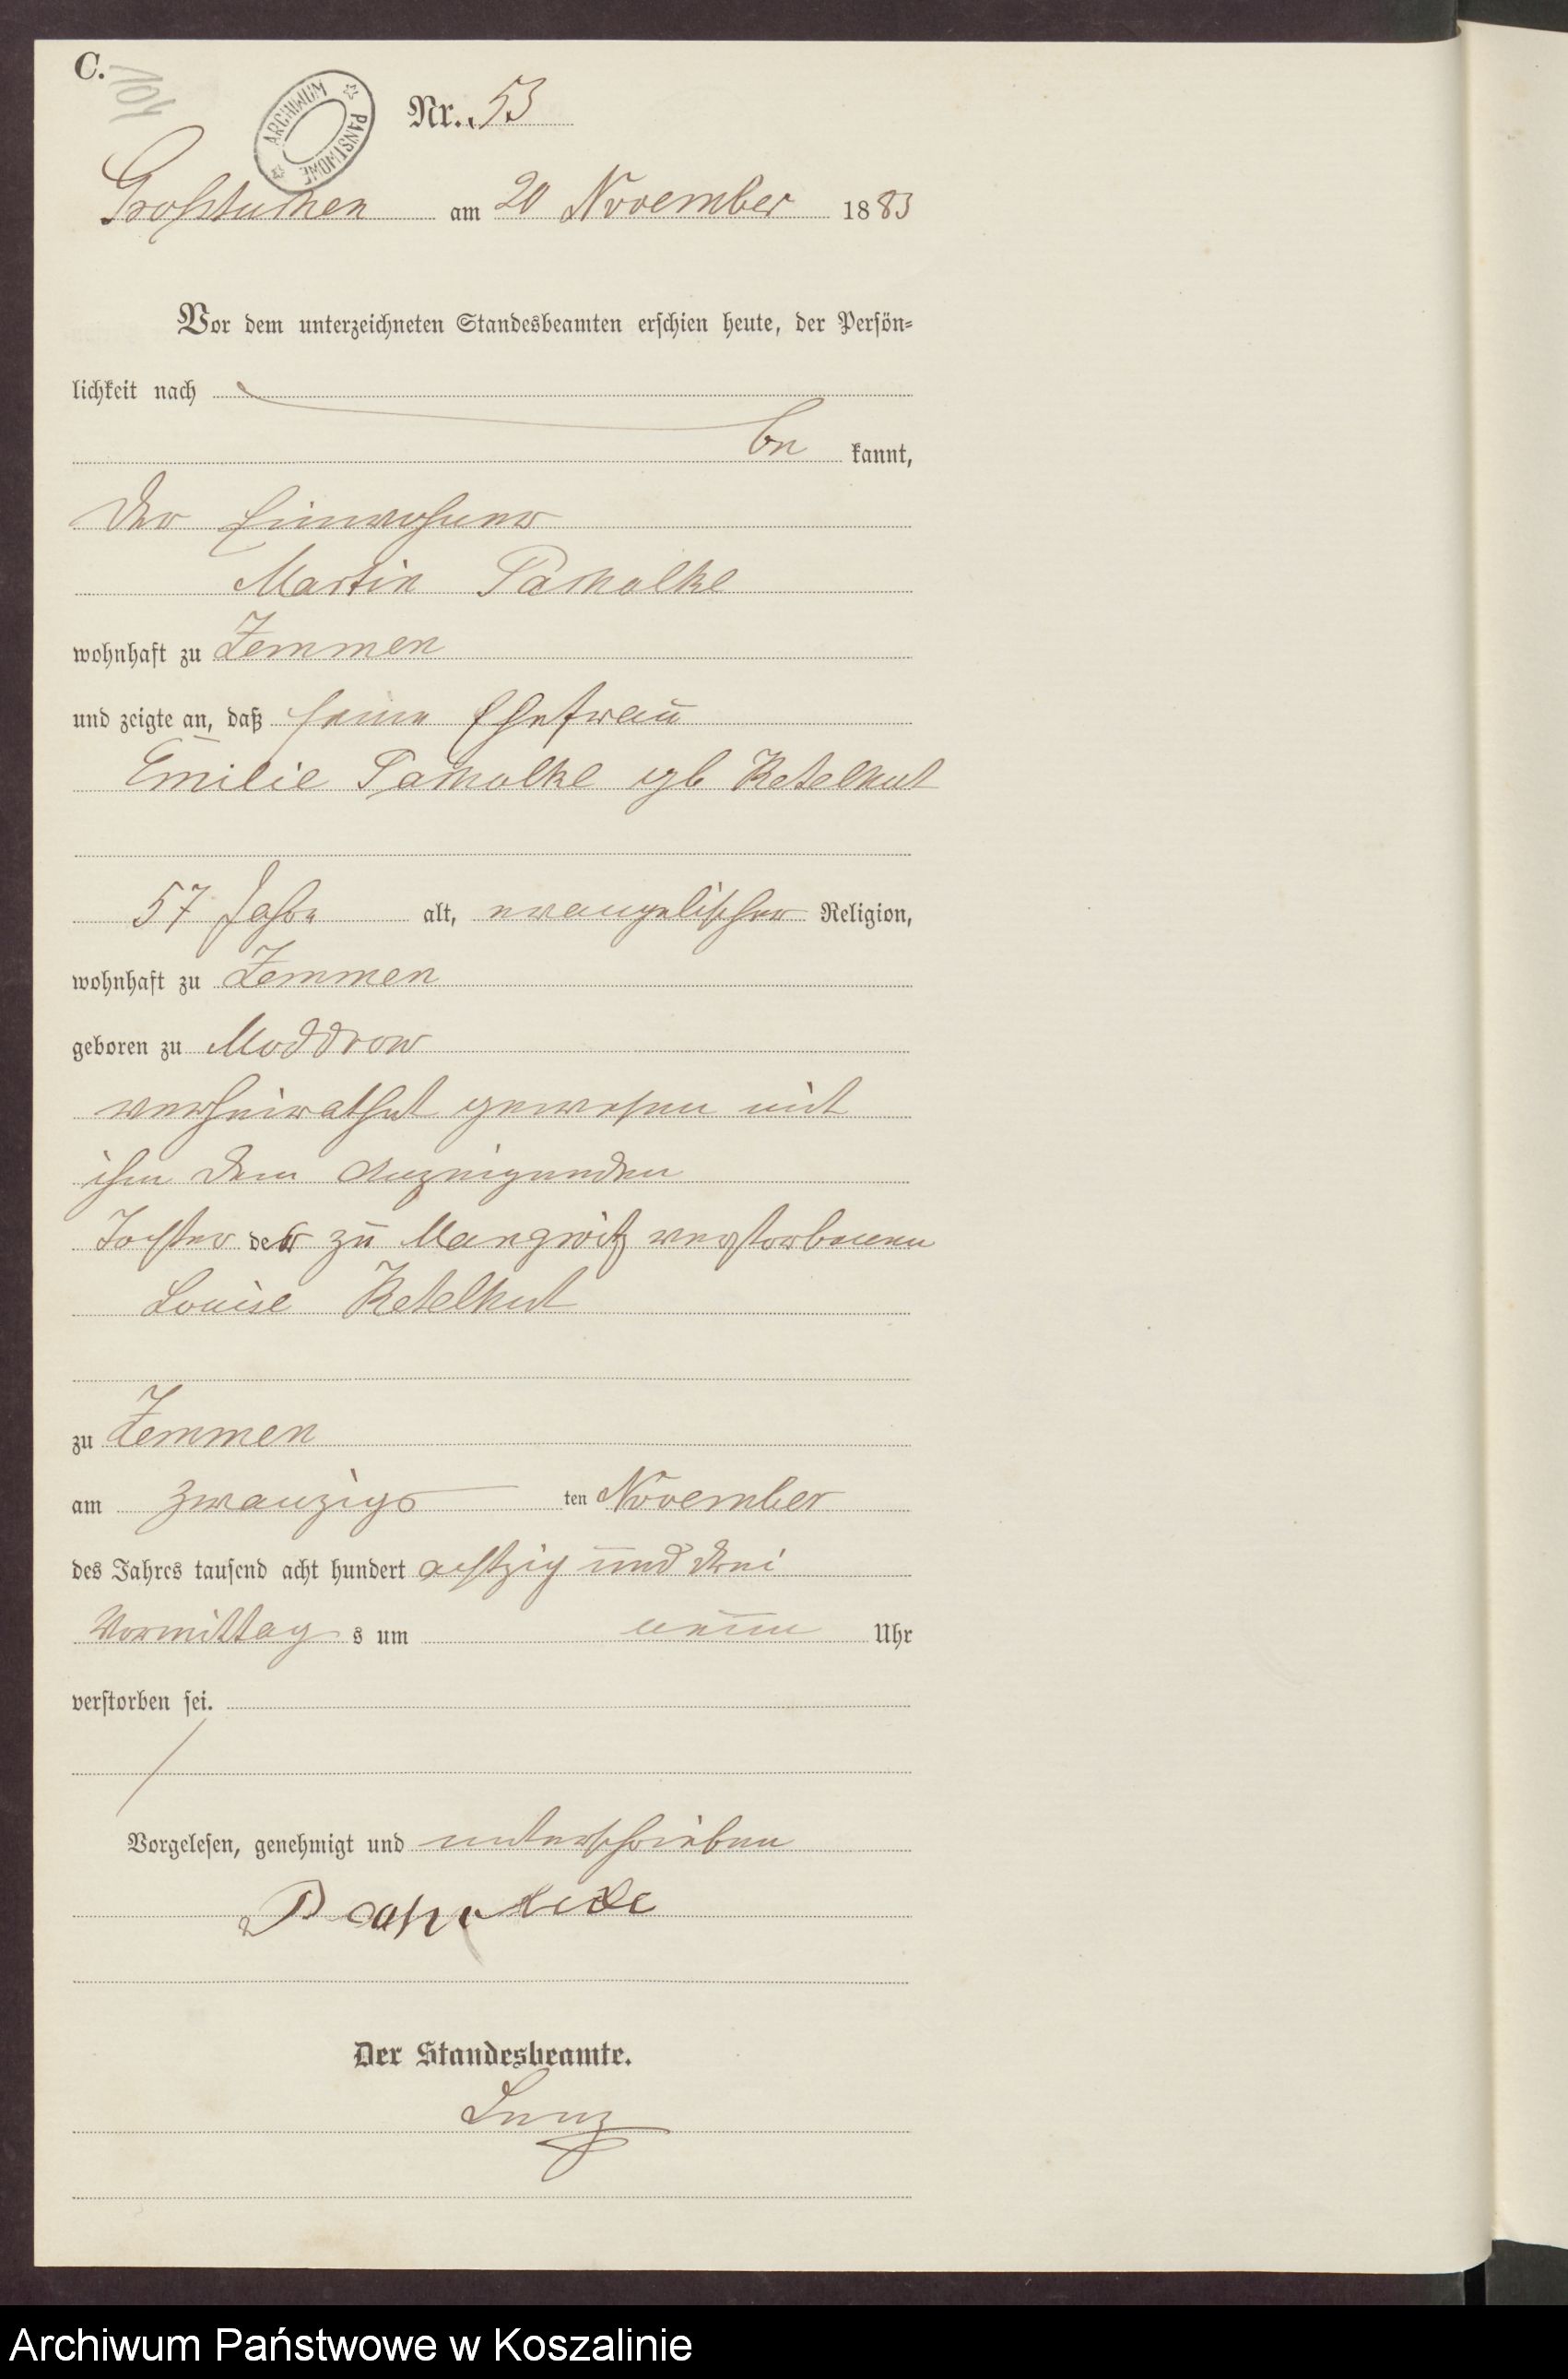 C.
104
ARCHIWUM PAŃSTWOWE
Nr. 53
Großtuchen am 20 November 1883
Vor dem unterzeichneten Standesbeamten erschien heute, der Persön=
lichkeit nach
be kannt,
der Einwohner
Martin
wohnhaft zu Zemmen
und zeigte an, daß seine Ehefrau
Emilie geb Retelhut
57 Jahre alt, evangelischer Religion,
wohnhaft zu Zemmen
geboren zu Moddrow
verheirathet gewesen mit
ihm dem Anzeigenden
Tochter der zu Mangwitz verstorbenen
Louise Retelhut
zu Zemmen
am zwanzigs ten November
des Jahres tausend acht hundert achtzig und drei
Vormittag s um neun Uhr
verstorben sei.
Vorgelesen, genehmigt und unterschrieben
Der Standesbeamte.
Archiwum Państwowe w Koszalinie